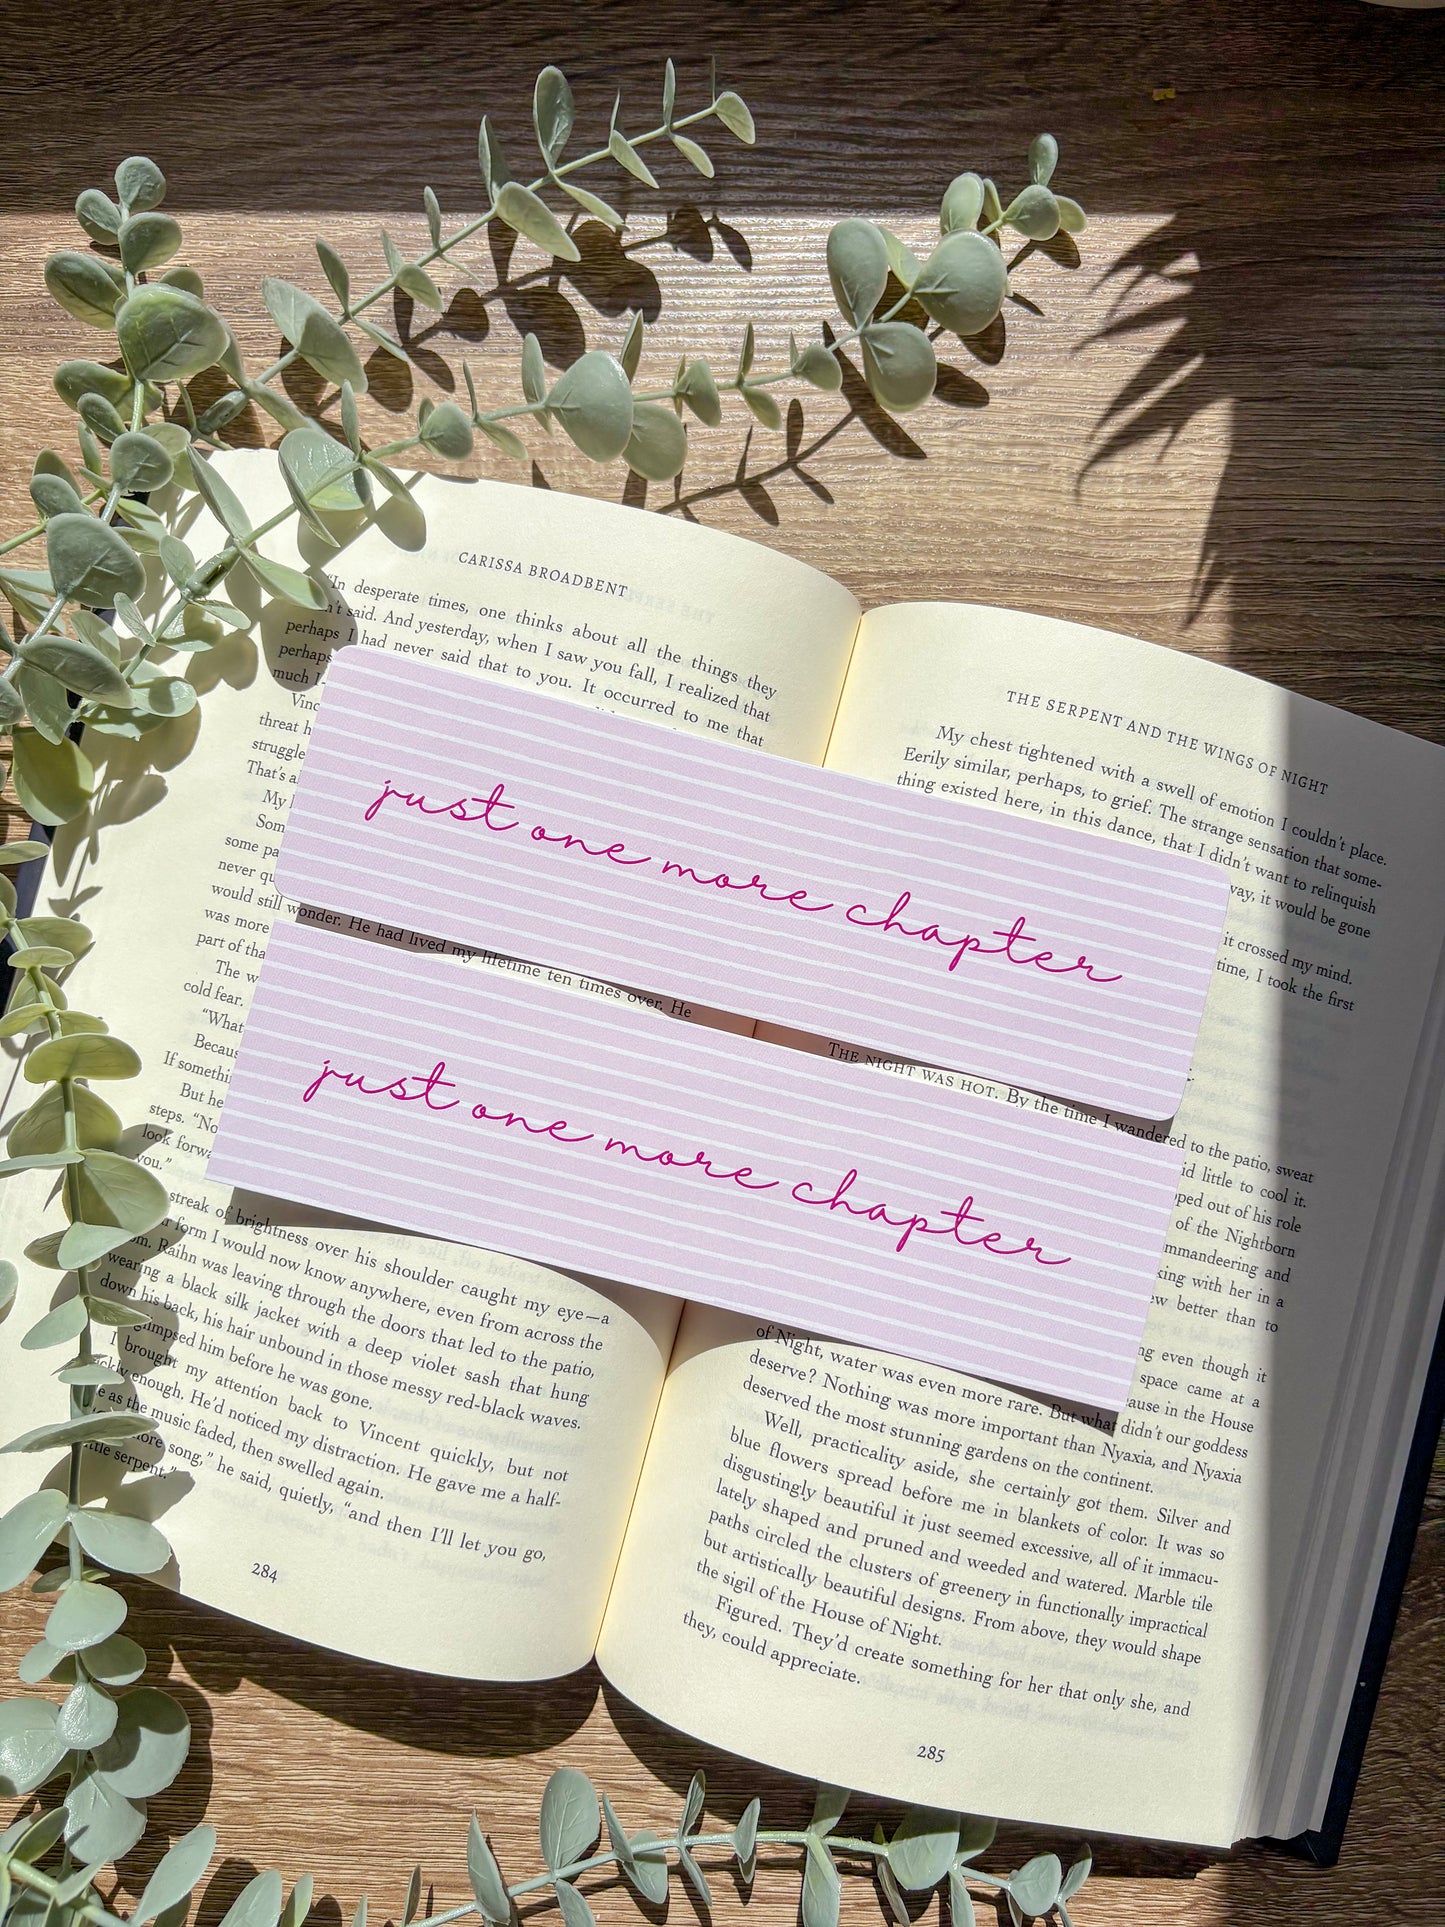 CARISSA BROADBENT
"In desperate times, one thinks about all the things they
n't said. And yesterday, when I saw you fall, I realized that
perhaps I had never said that to you. It occurred to me that
perhaps
much I
Vinc
threat h
struggle
That's a
My
Som
some pa
never qu
would still wonder. He had lived my lifetime ten times over. He
was more
part of tha
The w
cold fear.
"What
Becaus
If somethi
But he
steps. "No
look forwa
you."
streak of brightness over his shoulder caught my eye—a
form I would now know anywhere, even from across the
Raihn was leaving through the doors that led to the patio,
wearing a black silk jacket with a deep violet sash that hung
down his back, his hair unbound in those messy red-black waves.
I glimpsed him before he was gone.
I brought my attention back to Vincent quickly, but not
quickly enough. He'd noticed my distraction. He gave me a half-
as the music faded, then swelled again.
more song," he said, quietly, "and then I'll let you go,
little serpent."
284
just one more chapter
just one more chapter
THE SERPENT AND THE WINGS OF NIGHT
My chest tightened with a swell of emotion I couldn't place.
Eerily similar, perhaps, to grief. The strange sensation that some-
thing existed here, in this dance, that I didn't want to relinquish
way, it would be gone
it crossed my mind.
time, I took the first
THE NIGHT WAS HOT. By the time I wandered to the patio, sweat
id little to cool it.
ped out of his role
of the Nightborn
mmandeering and
king with her in a
ew better than to
ng even though it
space came at a
ause in the House
of Night, water was even more rare. But what didn't our goddess
deserve? Nothing was more important than Nyaxia, and Nyaxia
deserved the most stunning gardens on the continent.
Well, practicality aside, she certainly got them. Silver and
blue flowers spread before me in blankets of color. It was so
disgustingly beautiful it just seemed excessive, all of it immacu-
lately shaped and pruned and weeded and watered. Marble tile
paths circled the clusters of greenery in functionally impractical
but artistically beautiful designs. From above, they would shape
the sigil of the House of Night.
Figured. They'd create something for her that only she, and
they, could appreciate.
285